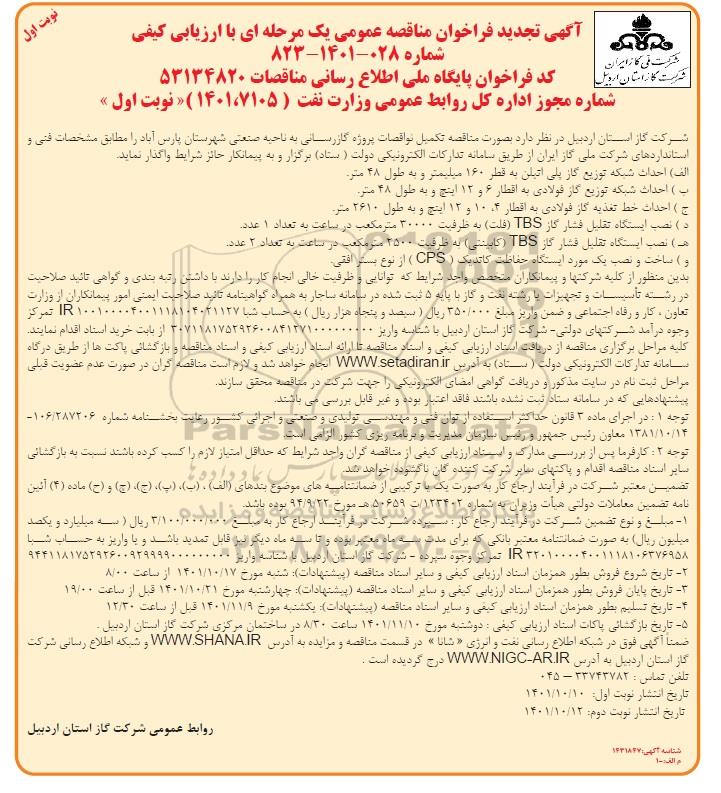 نوبت اول
شرکت ملی گاز ایران
شرکت گاز استان اردبیل
آگهی تجدید فراخوان مناقصه عمومی یک مرحله ای با ارزیابی کیفی
شماره ۰۲۸-۱۴۰۱-۸۲۳
کد فراخوان پایگاه ملی اطلاع رسانی مناقصات ۵۳۱۳۴۸۲۰
شماره مجوز اداره کل روابط عمومی وزارت نفت ( ۱۴۰۱،۷۱۰۵ )« نوبت اول »
شرکت گاز استان اردبیل در نظر دارد بصورت مناقصه تکمیل نواقصات پروژه گازرسانی به ناحیه صنعتی شهرستان پارس آباد را مطابق مشخصات فنی و
استانداردهای شرکت ملی گاز ایران از طریق سامانه تدارکات الکترونیکی دولت ( ستاد) برگزار و به پیمانکار حائز شرایط واگذار نماید.
الف) احداث شبکه توزیع گاز پلی اتیلن به قطر ۱۶۰ میلیمتر و به طول ۴۸ متر.
ب ) احداث شبکه توزیع گاز فولادی به اقطار ۶ و ۱۲ اینچ و به طول ۴۸ متر.
ج ) احداث خط تغذیه گاز فولادی به اقطار ۴، ۱۰ و ۱۲ اینچ و به طول ۲۶۱۰ متر.
د ) نصب ایستگاه تقلیل فشار گاز TBS (فلت) به ظرفیت ۳۰۰۰۰ مترمکعب در ساعت به تعداد ۱ عدد.
هـ ) نصب ایستگاه تقلیل فشار گاز TBS (کابینتی) به ظرفیت ۲۵۰۰ مترمکعب در ساعت به تعداد ۲ عدد.
و ) ساخت و نصب یک مورد ایستگاه حفاظت کاتدیک ( CPS ) از نوع بستر افقی.
بدین منظور از کلیه شرکتها و پیمانکاران متخصص واجد شرایط که توانایی و ظرفیت خالی انجام کار را دارند با داشتن رتبه بندی و گواهی تائید صلاحیت
در رشته تأسیسات و تجهیزات یا رشته نفت و گاز با پایه ۵ ثبت شده در سامانه ساجار به همراه گواهینامه تائید صلاحیت ایمنی امور پیمانکاران از وزارت
تعاون ، کار و رفاه اجتماعی و ضمن واریز مبلغ ۳۵۰/۰۰۰ ریال ( سیصد و پنجاه هزار ریال ) به حساب شبا IR ۱۰۰۱۰۰۰۰۴۰۰۱۱۱۸۱۰۴۰۲۱۱۲۷ تمرکز
وجوه درآمد شرکتهای دولتی- شرکت گاز استان اردبیل با شناسه واریز ۳۰۷۱۱۸۱۷۵۲۹۲۶۰۰۸۴۱۲۷۱۰۰۰۰۰۰۰۰ از بابت خرید اسناد اقدام نمایند.
کلیه مراحل برگزاری مناقصه از دریافت اسناد ارزیابی کیفی و اسناد مناقصه تا ارائه اسناد ارزیابی کیفی و اسناد مناقصه و بازگشائی پاکت ها از طریق درگاه
سامانه تدارکات الکترونیکی دولت ( ستاد) به آدرس WWW.setadiran.ir انجام خواهد شد و لازم است مناقصه گران در صورت عدم عضویت قبلی
مراحل ثبت نام در سایت مذکور و دریافت گواهی امضای الکترونیکی را جهت شرکت در مناقصه محقق سازند.
پیشنهادهایی که در سامانه ستاد ثبت نشده باشند فاقد اعتبار بوده و غیر قابل بررسی می باشند.
توجه ۱ : در اجرای ماده ۳ قانون حداکثر استفاده از توان فنی و مهندسی تولیدی و صنعتی و اجرائی کشور رعایت بخشنامه شماره ۱۰۶/۲۸۷۲۰۶-
۱۳۸۱/۱۰/۱۴ معاون رئیس جمهور و رئیس سازمان مدیریت و برنامه ریزی کشور الزامی است.
توجه ۲ : کارفرما پس از بررسی مدارک و اسناد ارزیابی کیفی از مناقصه گران واجد شرایط که حداقل امتیاز لازم را کسب کرده باشند نسبت به بازگشائی
سایر اسناد مناقصه اقدام و پاکتهای سایر شرکت کننده گان ناگشوده خواهد شد.
تضمین معتبر شرکت در فرآیند ارجاع کار به صورت یک یا ترکیبی از ضمانتنامه های موضوع بندهای (الف) ، (ب)، (پ)، (ج)، (چ) و (ح) ماده (۴) آئین
نامه تضمین معاملات دولتی هیأت وزیران به شماره ۱۲۳۴۰۲/ت ۵۰۶۵۹ هـ مورخ ۹۴/۹/۲۲ بوده باشد.
۱- مبلغ و نوع تضمین شرکت در فرآیند ارجاع کار : سپرده شرکت در فرآیند ارجاع کار به مبلغ ۳/۱۰۰/۰۰۰/۰۰۰ ریال ( سه میلیارد و یکصد
میلیون ریال) به صورت ضمانتنامه معتبر بانکی که برای مدت سه ماه معتبر بوده و تا سه ماه دیگر نیز قابل تمدید باشد و یا واریز به حساب شبا
IR ۳۲۰۱۰۰۰۰۴۰۰۱۱۱۸۱۰۶۳۷۶۹۵۸ تمرکز وجوه سپرده - شرکت گاز استان اردبیل با شناسه واریز ۹۴۴۱۱۸۱۷۵۲۹۲۶۰۰۹۲۹۹۹۹۰۰۰۰۰۰۰۰
۲- تاریخ شروع فروش بطور همزمان اسناد ارزیابی کیفی و سایر اسناد مناقصه (پیشنهادات): شنبه مورخ ۱۴۰۱/۱۰/۱۷ از ساعت ۸/۰۰
۳- تاریخ پایان فروش بطور همزمان اسناد ارزیابی کیفی و سایر اسناد مناقصه (پیشنهادات): چهارشنبه مورخ ۱۴۰۱/۱۰/۲۱ قبل از ساعت ۱۹/۰۰
۴- تاریخ تسلیم بطور همزمان اسناد ارزیابی کیفی و سایر اسناد مناقصه (پیشنهادات): یکشنبه مورخ ۱۴۰۱/۱۱/۹ قبل از ساعت ۱۲/۳۰
۵- تاریخ بازگشائی پاکات اسناد ارزیابی کیفی : دوشنبه مورخ ۱۴۰۱/۱۱/۱۰ ساعت ۸/۳۰ در ساختمان مرکزی شرکت گاز استان اردبیل .
ضمناً آگهی فوق در شبکه اطلاع رسانی نفت و انرژی « شانا » در قسمت مناقصه و مزایده به آدرس WWW.SHANA.IR و شبکه اطلاع رسانی شرکت
گاز استان اردبیل به آدرس WWW.NIGC-AR.IR درج گردیده است .
تلفن تماس : ۳۳۷۴۳۷۸۲ – ۰۴۵
تاریخ انتشار نوبت اول: ۱۴۰۱/۱۰/۱۰
تاریخ انتشار نوبت دوم: ۱۴۰۱/۱۰/۱۲
روابط عمومی شرکت گاز استان اردبیل
شناسه آگهی:۱۴۳۱۸۴۷
م الف:۱۰